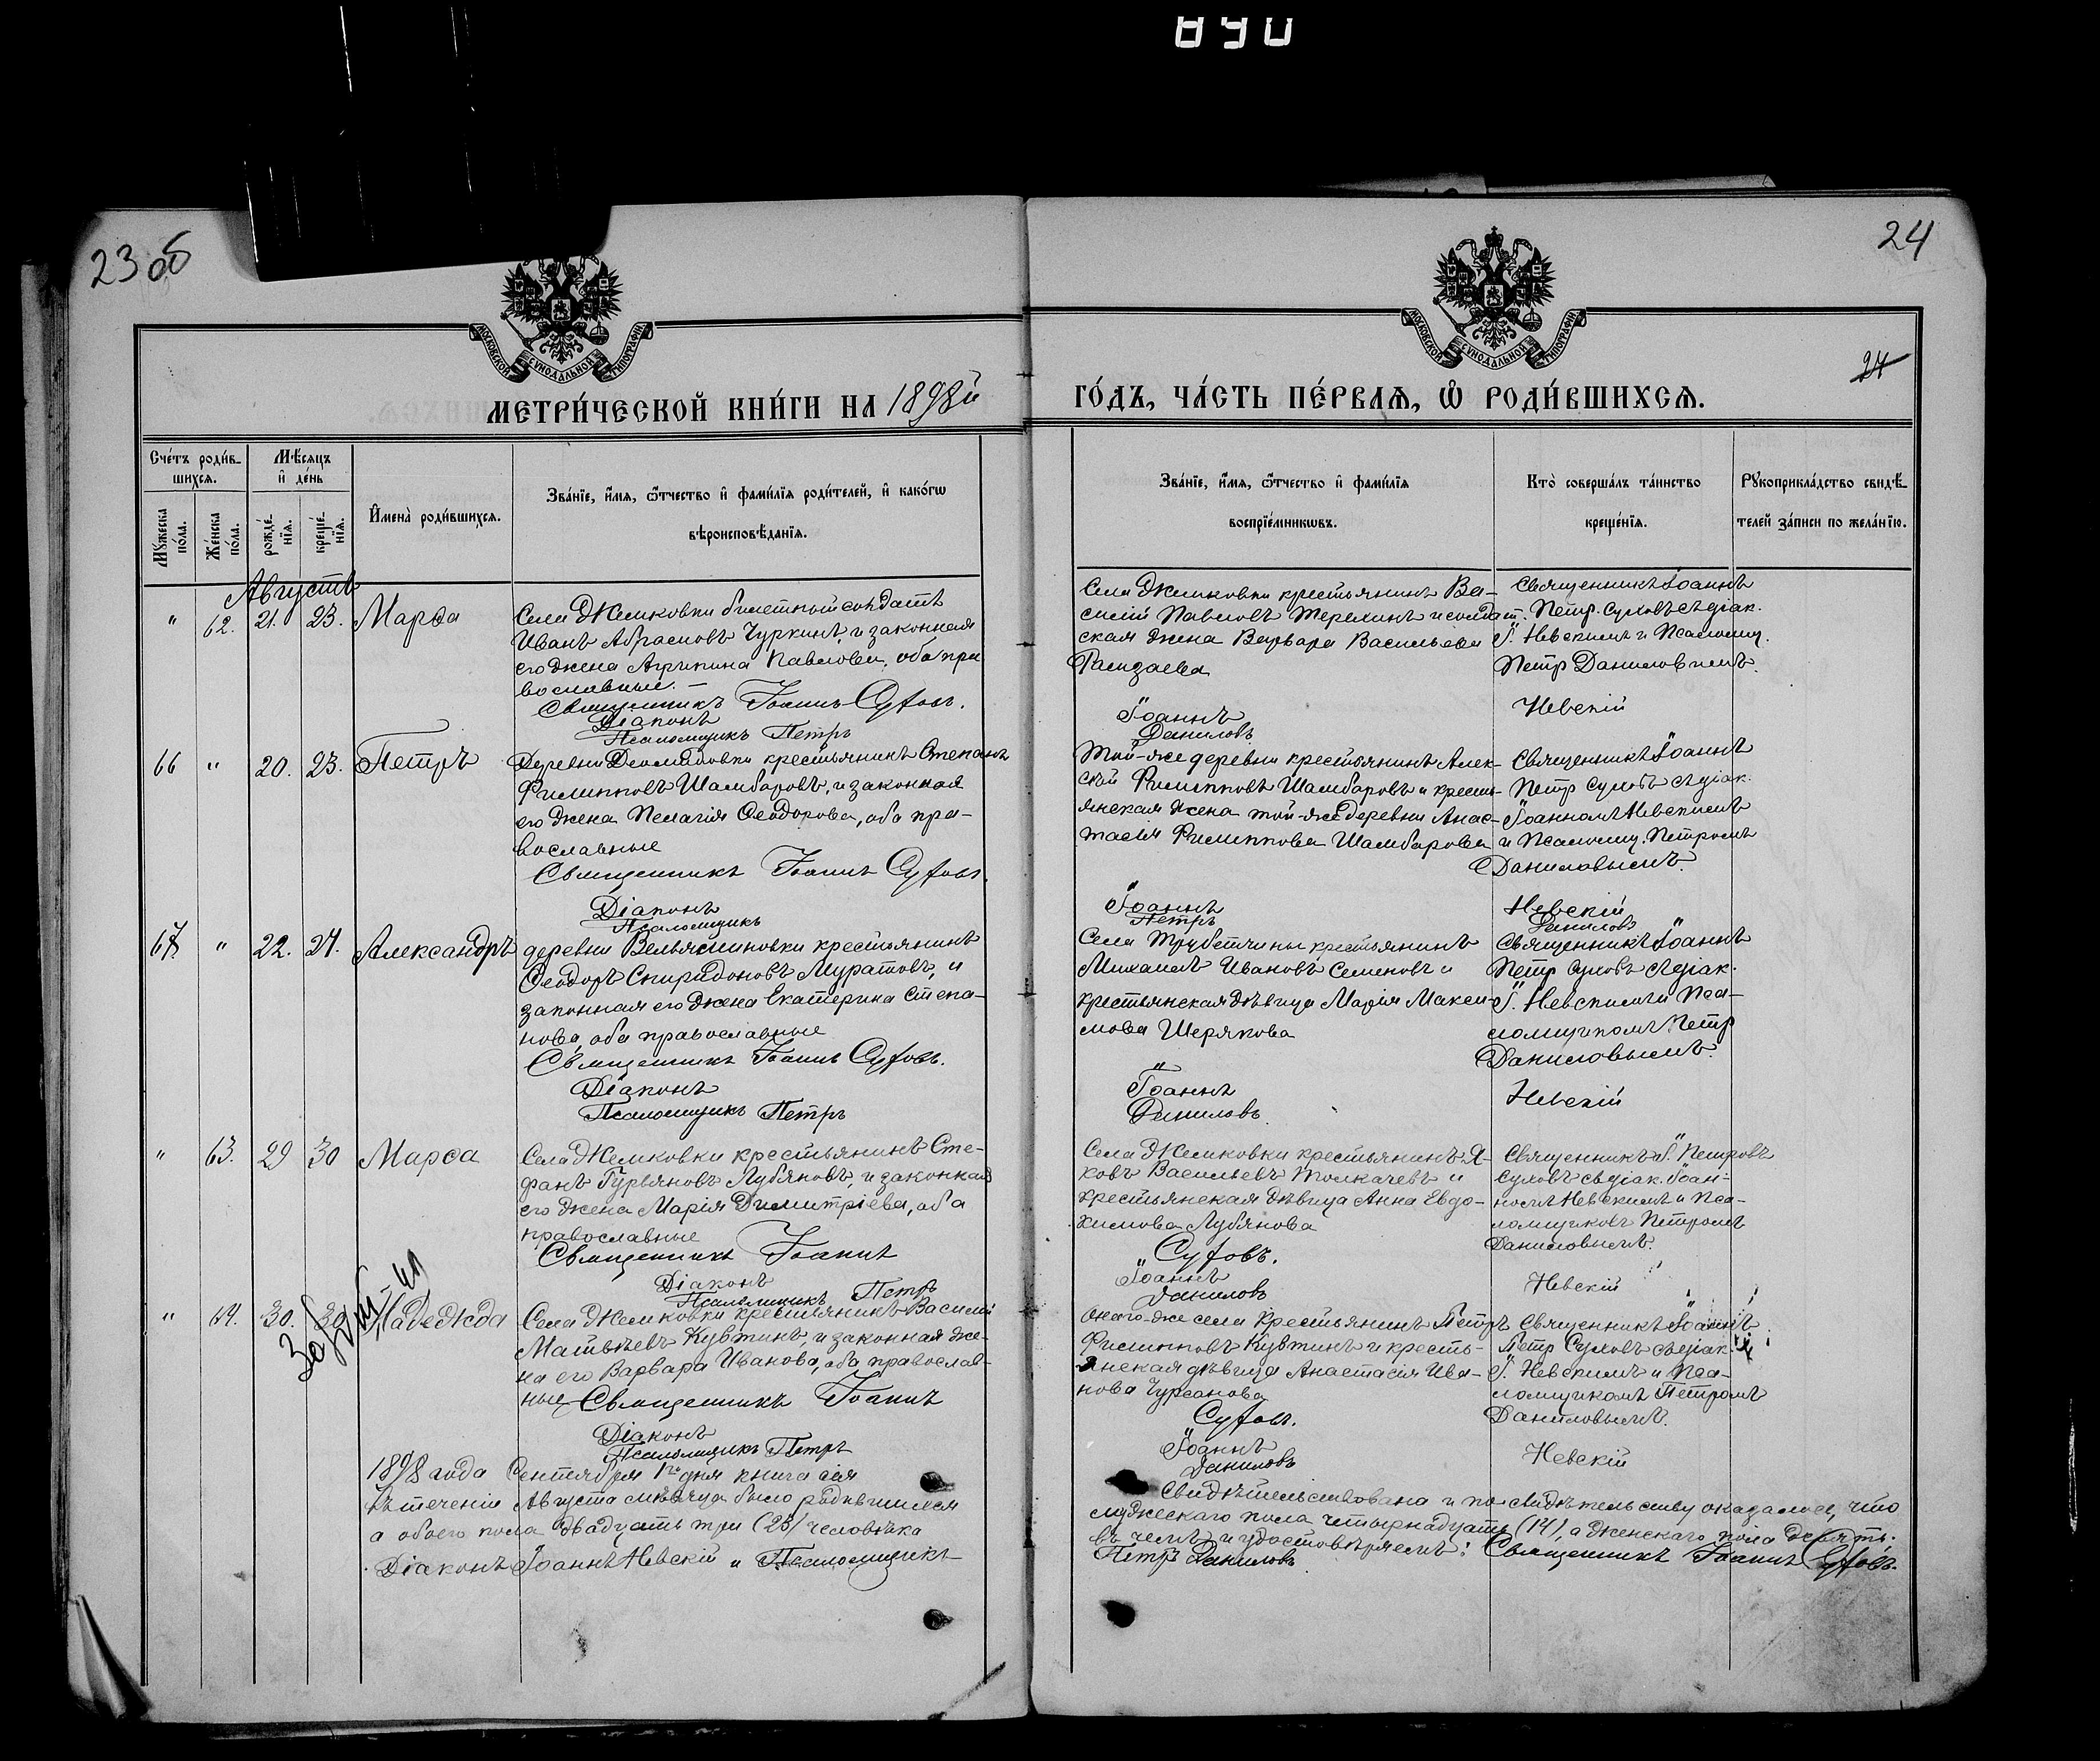 890
23 об
24
24
МОСКОВСКОЙ СѴНОДАЛЬНОЙ ТИПОГРАФІИ
МОСКОВСКОЙ СѴНОДАЛЬНОЙ ТИПОГРАФІИ
МЕТРИ́ЧЕСКОЙ КНИ́ГИ НА 1898й
ГО́ДЪ, ЧА́СТЬ ПЕ́РВАЯ, Ѡ РОДИ́ВШИХСЯ.
Сче́тъ роди́в-
шихся.
Му́жеска по́ла.
Же́нска по́ла.
Мѣ́сяцъ
и҆ де́нь
рожде́-
нїя.
креще́-
нїя.
И҆мена̀ роди́вшихся.
Зва́нїе, и҆́мя, ѻ҆́тчество и҆ фами́лїя роди́телей, и҆ како́гѡ
вѣроисповѣ́данїя.
Зва́нїе, и҆́мя, ѻ҆́тчество и҆ фами́лїя
воспрїе́мникѡвъ.
Кто̀ соверша́лъ та́инство
креще́нїя.
Рꙋкоприкла́дство свидѣ́-
телей за́писи по жела́нїю.
Августъ
" 62. 21. 23. Марѳа
Села Жемковки билетный солдатъ
Иванъ Абрамовъ Чуркинъ, и законная
его жена Агрипина Павлова, оба пра
вославные.
Священникъ Іоаннъ Суховъ.
Діаконъ
Псаломщикъ Петръ
Села Жемковки крестьянинъ Ва-
силій Павловъ Терехинъ и солдат.
ская жена Варвара Васильева
Священникъ Іоаннъ
Петр. Суховъ съ діак.
І. Невскимъ и Псаломщ.
Петр Даниловымъ.
Іоаннъ
Даниловъ
Невскій
66 " 20. 23. Петръ
Деревни Деомидовки крестьянинъ Степанъ
Филипповъ Шамбаровъ, и законная
его жена Пелагія Ѳеодорова, оба пра-
вославные
Священникъ Іоаннъ Суховъ.
Діаконъ
Псаломщикъ
Той-же деревни крестьянинъ Алек-
сѣй Филипповъ Шамбаровъ и кресть-
янская жена той-же деревни Анас-
тасія Филиппова Шамбарова
Священникъ Іоаннъ
Петр Суховъ съ діак.
Іоанномъ Невскимъ
и Псаломщ. Петромъ
Даниловымъ.
Іоаннъ
Петръ
Невскій
Даниловъ
67 " 22. 24. Александръ
деревни Вельяминовки крестьянинъ
Ѳеодоръ Спиридоновъ Муратовъ, и
законная его жена Екатерина Степа-
нова, оба православные
Священникъ Іоаннъ Суховъ.
Діаконъ
Псаломщикъ Петръ
Села Трубетчины крестьянинъ
Михаилъ Ивановъ Семеновъ и
крестьянская дѣвица Марія Макси-
мова Шерякова
Священникъ Іоаннъ
Петр Суховъ съ діак.
І. Невскимъ и Пса-
ломщикомъ Петр
Даниловымъ.
Іоаннъ
Даниловъ
Невскій
" 63. 29 30 Марѳа
Села Жемковки крестьянинъ Сте-
фанъ Гурьяновъ Лубяновъ, и законная
его жена Марія Димитріева, оба
православные
Священникъ Іоаннъ
Діаконъ
Псаломщикъ Петръ
Села Жемковки крестьянинъ Я-
ковъ Васильевъ Толкачевъ и
крестьянская дѣвица Анна Евдо-
кимова Лубянова
Суховъ.
Іоаннъ
Даниловъ
Священникъ І. Петровъ
Суховъ съ діак. Іоан-
номъ Невскимъ и Пса-
ломщиковъ Петромъ
Даниловымъ.
Невскій
" 64. 30. 30 Надежда
Села Жемковки крестьянинъ Василій
Матвѣевъ Кувтинъ, и законная же-
на его Варвара Иванова, оба православ-
ные Священникъ Іоаннъ
Діаконъ
Псаломщикъ Петръ
Онаго-же села крестьянинъ Петръ
Филипповъ Кувтинъ и кресть-
янская дѣвица Анастасія Ива-
нова Чурсанова
Суховъ.
Іоаннъ
Даниловъ
Священникъ Іоаннъ
Петр Суховъ съ діак.
І. Невскимъ и Пса-
ломщикомъ Петромъ
Даниловымъ.
Невскій
1898 года Сентября 1го дня книга сія
Свидѣтельствована и по свидѣтельству оказалось, что
въ теченіи Августа мѣсяца было родившихся
мужескаго пола четырнадцать (14), а женскаго пола девять.
а обоего пола двадцать три (23) человѣка
въ чемъ и удостовѣряемъ: Священникъ Іоаннъ Суховъ.
Діаконъ Іоаннъ Невскій и Псаломщикъ
Петръ Даниловъ